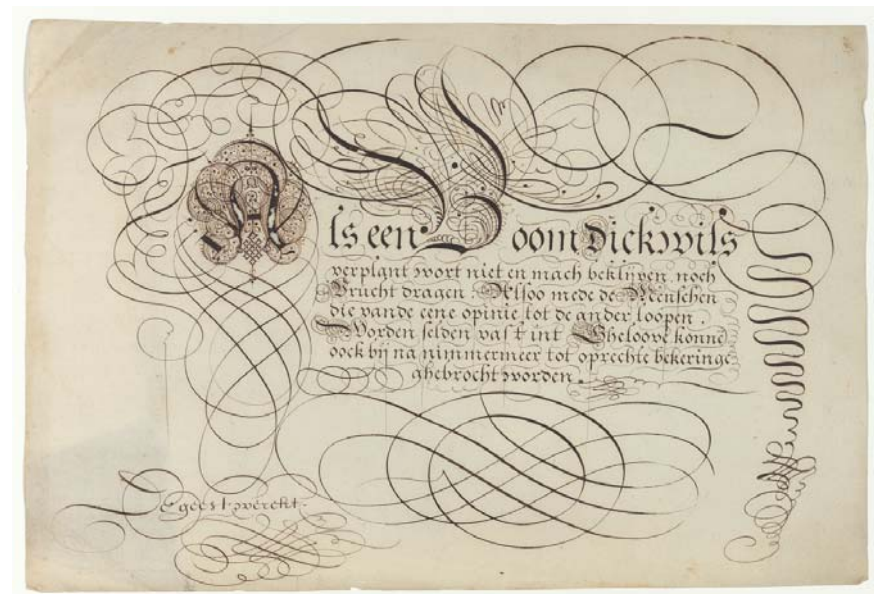 Als een Boom dickwils
verplant wort niet en mach beklijven noch
Vrucht dragen. Alsoo mede de Menschen
die vande eene opinie tot de ander loopen.
Worden selden vast int Gheloove konne
oock bij na nimmermeer tot oprechte bekeringe
ghebrocht worden.
De geest werckt.